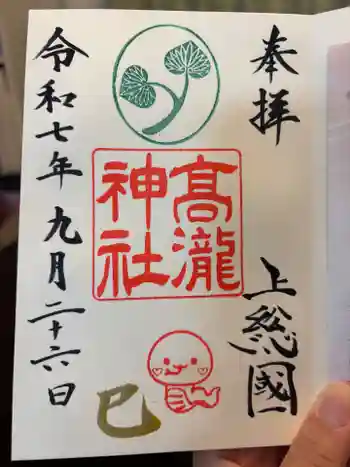 奉拝
上総國
髙瀧
神社
巳
令和七年九月二十六日